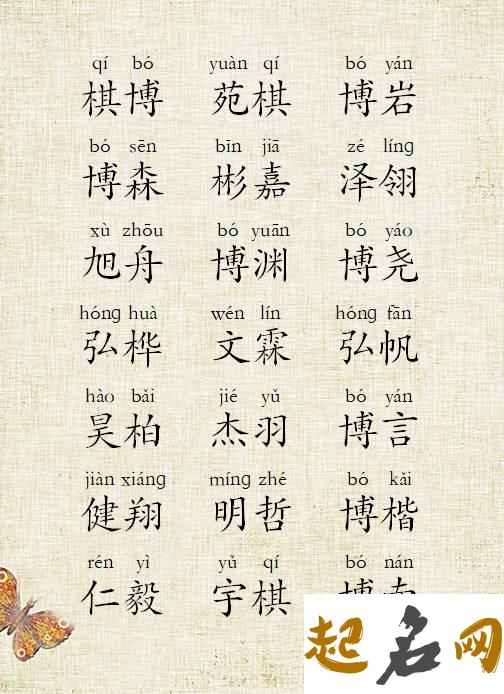 qí bó yuàn qí bó yán
棋博 苑棋 博岩
bó sēn bīn jiā zé líng
博森 彬嘉 泽翎
xù zhōu bó yuān bó yáo
旭舟 博渊 博尧
hóng huà wén lín hóng fān
弘桦 文霖 弘帆
hào bǎi jié yǔ bó yán
昊柏 杰羽 博言
jiàn xiáng míng zhé bó kǎi
健翔 明哲 博楷
rén yì yǔ qí bó nán
仁毅 宇棋 博南
起名网